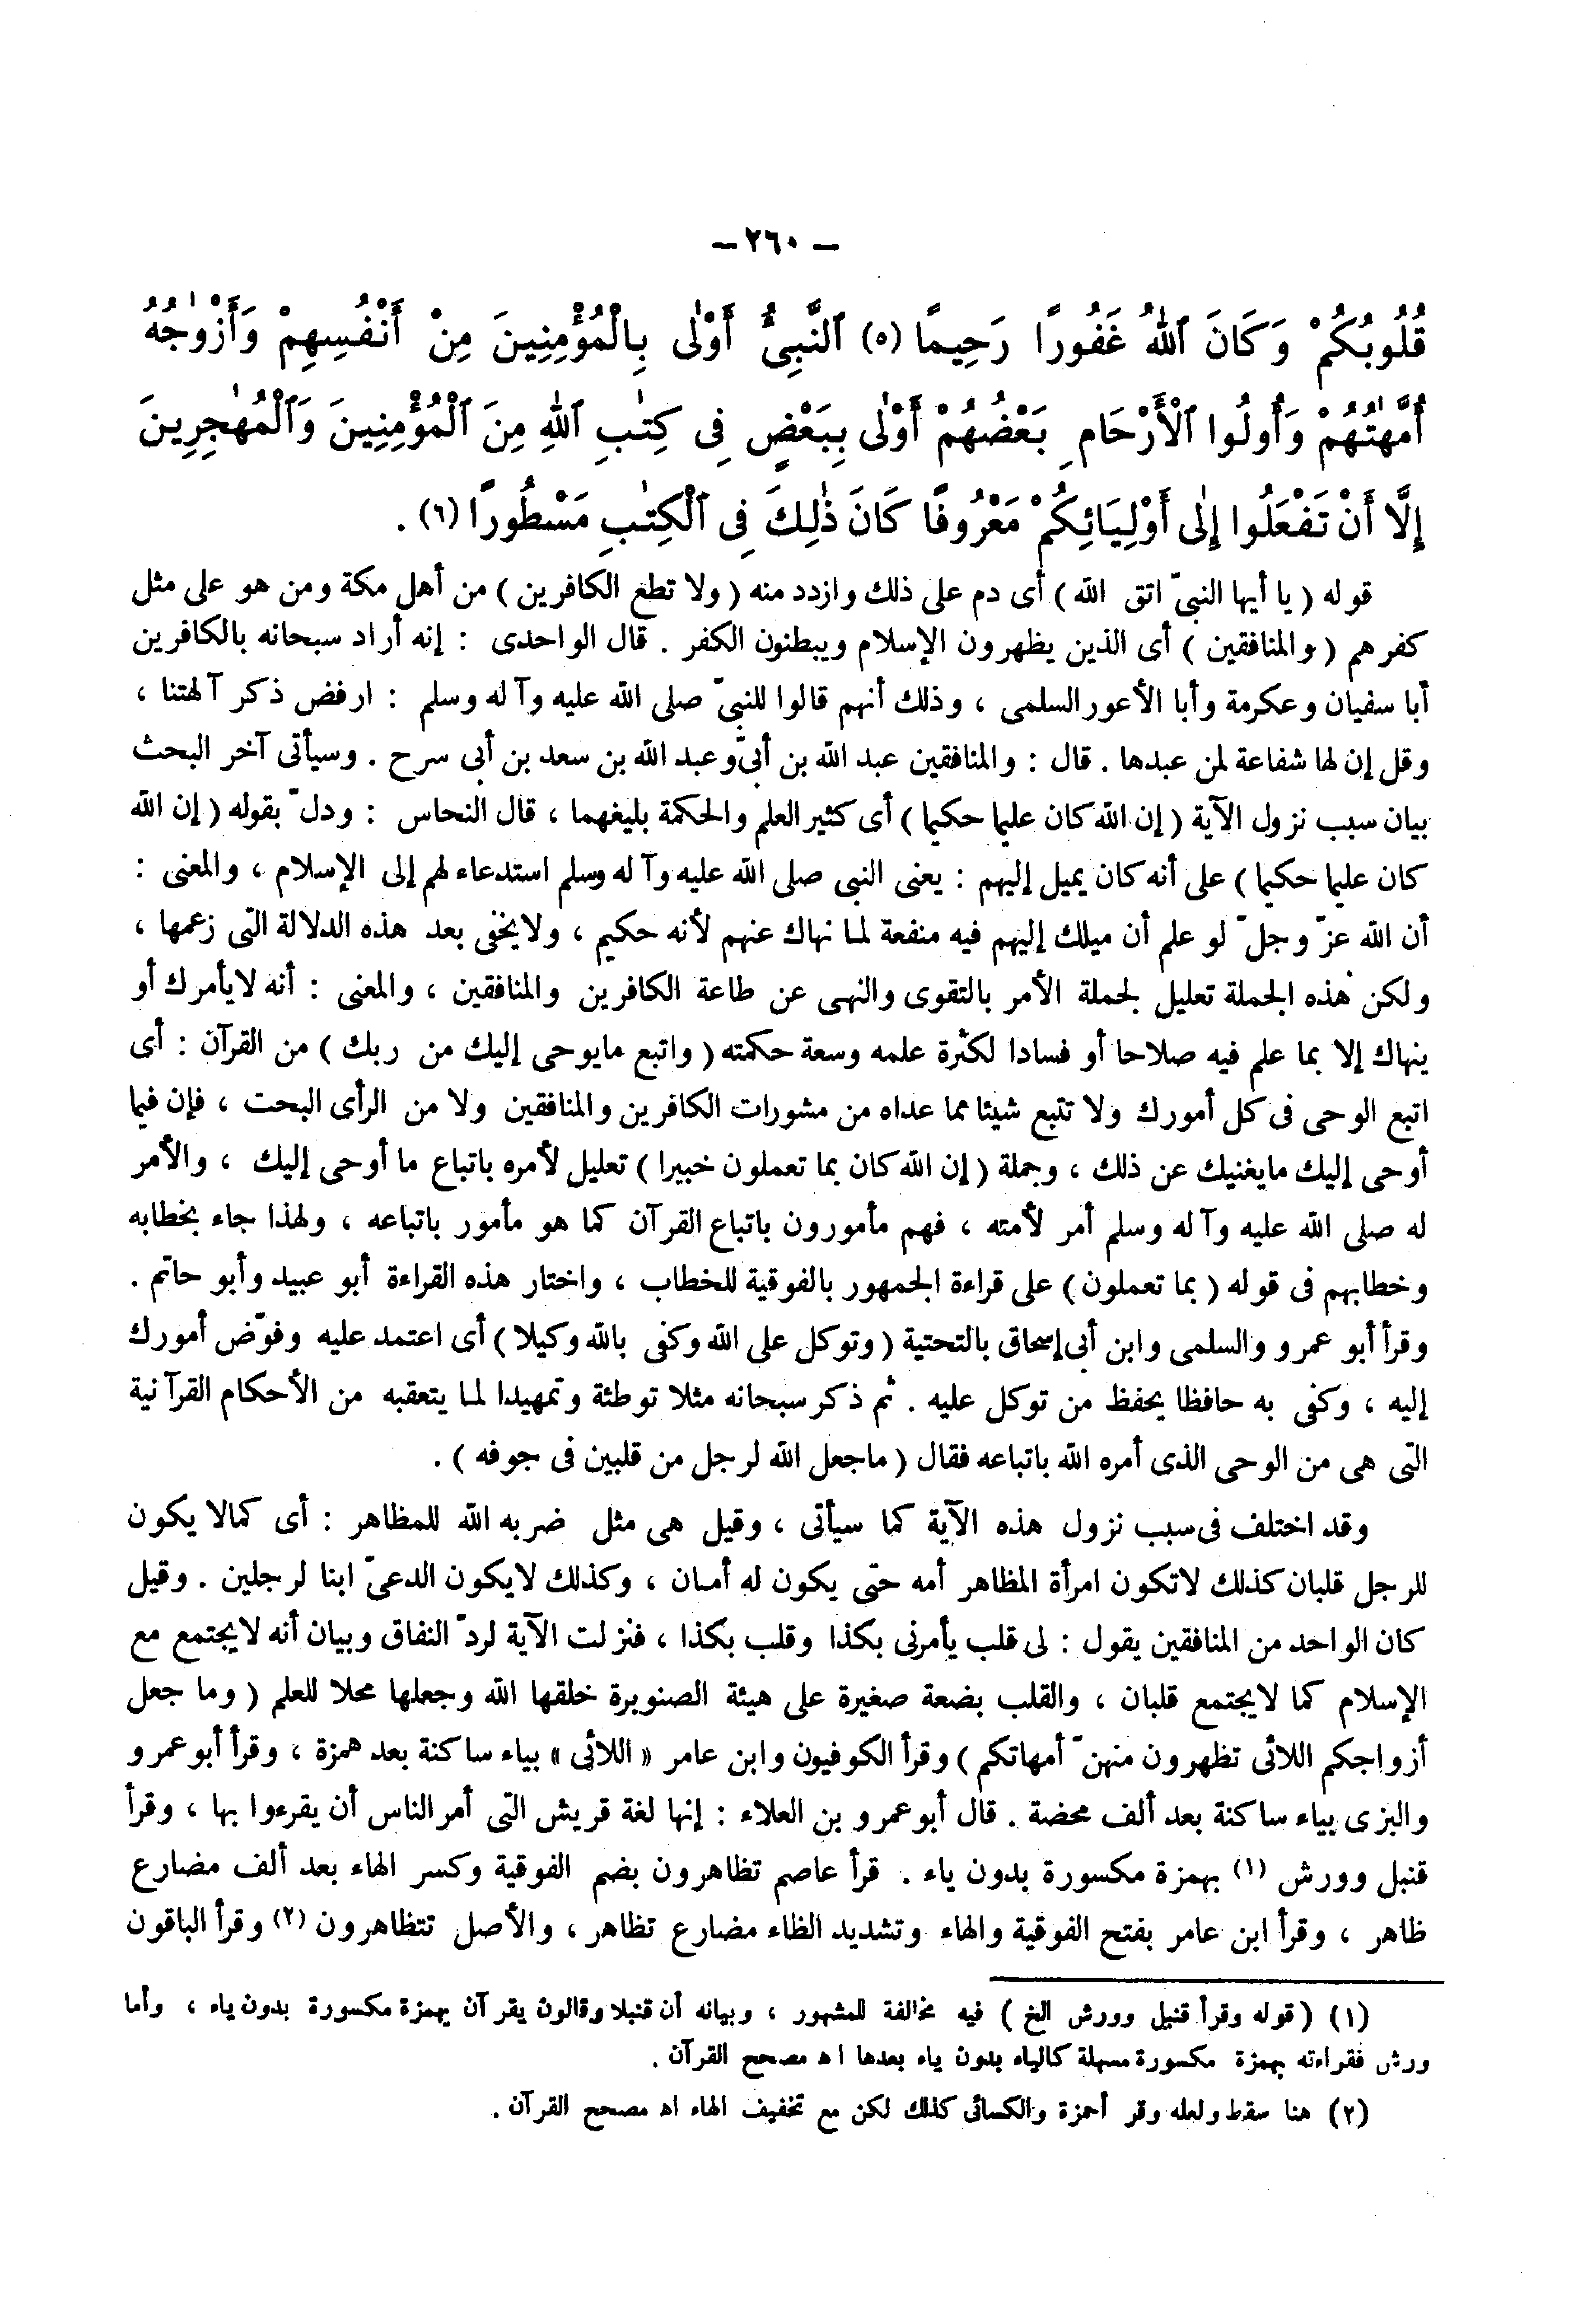 – ٢٦٠ –
قُلُوبُكُمْ وَكَانَ ٱللهُ غَفُورًا رَحِيمًا (٥) ٱلنَّبِيُّ أَوْلٰى بِالْمُؤْمِنِينَ مِنْ أَنْفُسِهِمْ وَأَزْوٰجُهُ
أُمَّهٰتُهُمْ وَأُولُوا ٱلْأَرْحَامِ بَعْضُهُمْ أَوْلٰى بِبَعْضٍ فِى كِتٰبِ ٱللهِ مِنَ ٱلْمُؤْمِنِينَ وَٱلْمُهٰجِرِينَ
إِلَّا أَنْ تَفْعَلُوا إِلٰى أَوْلِيَائِكُمْ مَعْرُوفًا كَانَ ذٰلِكَ فِى ٱلْكِتٰبِ مَسْطُورًا (٦) .
قوله ( يا أيها النبىّ اتق الله ) أى دم على ذلك وازدد منه ( ولا تطع الكافرين ) من أهل مكة ومن هو على مثل
كفرهم ( والمنافقين ) أى الذين يظهرون الإسلام ويبطنون الكفر . قال الواحدى : إنه أراد سبحانه بالكافرين
أبا سفيان وعكرمة وأبا الأعور السلمى ، وذلك أنهم قالوا للنبىّ صلى الله عليه وآله وسلم : ارفض ذكر آلهتنا ،
وقل إن لها شفاعة لمن عبدها . قال : والمنافقين عبد الله بن أبىّ وعبد الله بن سعد بن أبى سرح . وسيأتى آخر البحث
بيان سبب نزول الآية ( إن الله كان عليما حكيما ) أى كثير العلم والحكمة بليغهما ، قال النحاس : ودلّ بقوله ( إن الله
كان عليما حكيما ) على أنه كان يميل إليهم : يعنى النبى صلى الله عليه وآله وسلم استدعاء لهم إلى الإسلام ، والمعنى :
أن الله عزّ وجلّ لو علم أن ميلك إليهم فيه منفعة لما نهاك عنهم لأنه حكيم ، ولا يخفى بعد هذه الدلالة التى زعمها ،
ولكن هذه الجملة تعليل لجملة الأمر بالتقوى والنهى عن طاعة الكافرين والمنافقين ، والمعنى : أنه لا يأمرك أو
ينهاك إلا بما علم فيه صلاحا أو فسادا لكثرة علمه وسعة حكمته ( واتبع مايوحى إليك من ربك ) من القرآن : أى
اتبع الوحى فى كل أمورك ولا تتبع شيئا مما عداه من مشورات الكافرين والمنافقين ولا من الرأى البحت ، فإن فيما
أوحى إليك مايغنيك عن ذلك ، وجملة ( إن الله كان بما تعملون خبيرا ) تعليل لأمره باتباع ما أوحى إليك ، والأمر
له صلى الله عليه وآله وسلم أمر لأمته ، فهم مأمورون باتباع القرآن كما هو مأمور باتباعه ، ولهذا جاء بخطابه
وخطابهم فى قوله ( بما تعملون ) على قراءة الجمهور بالفوقية للخطاب ، واختار هذه القراءة أبو عبيد وأبو حاتم .
وقرأ أبو عمرو والسلمى وابن أبى إسحاق بالتحتية ( وتوكل على الله وكفى بالله وكيلا ) أى اعتمد عليه وفوّض أمورك
إليه ، وكفى به حافظا يحفظ من توكل عليه . ثم ذكر سبحانه مثلا توطئة وتمهيدا لما يتعقبه من الأحكام القرآنية
التى هى من الوحى الذى أمره الله باتباعه فقال ( ماجعل الله لرجل من قلبين فى جوفه ) .
وقد اختلف فى سبب نزول هذه الآية كما سيأتى ، وقيل هى مثل ضربه الله للمظاهر : أى كمالا يكون
للرجل قلبان كذلك لاتكون امرأة المظاهر أمه حتى يكون له أمان ، وكذلك لايكون الدعىّ ابنا لرجلين . وقيل
كان الواحد من المنافقين يقول : لى قلب يأمرنى بكذا وقلب بكذا ، فنزلت الآية لردّ النفاق وبيان أنه لايجتمع مع
الإسلام كما لايجتمع قلبان ، والقلب بضعة صغيرة على هيئة الصنوبرة خلقها الله وجعلها محلا للعلم ( وما جعل
أزواجكم اللائى تظهرون منهنّ أمهاتكم ) وقرأ الكوفيون وابن عامر « اللائى » بياء ساكنة بعد همزة ، وقرأ أبو عمرو
والبزى بياء ساكنة بعد ألف محضة . قال أبو عمرو بن العلاء : إنها لغة قريش التى أمر الناس أن يقرءوا بها ، وقرأ
قنبل وورش (١) بهمزة مكسورة بدون ياء . قرأ عاصم تظاهرون بضم الفوقية وكسر الهاء بعد ألف مضارع
ظاهر ، وقرأ ابن عامر بفتح الفوقية والهاء وتشديد الظاء مضارع تظاهر ، والأصل تتظاهرون (٢) وقرأ الباقون
(١) ( قوله وقرأ قنبل وورش الخ ) فيه مخالفة للمشهور ، وبيانه أن قنبلا وقالون يقرآن بهمزة مكسورة بدون ياء ، وأما
ورش فقراءته بهمزة مكسورة مسهلة كالياء بدون ياء بعدها اه مصحح القرآن .
(٢) هنا سقط ولعله وقر أحمزة والكسائى كذلك لكن مع تخفيف الهاء اه مصحح القرآن .